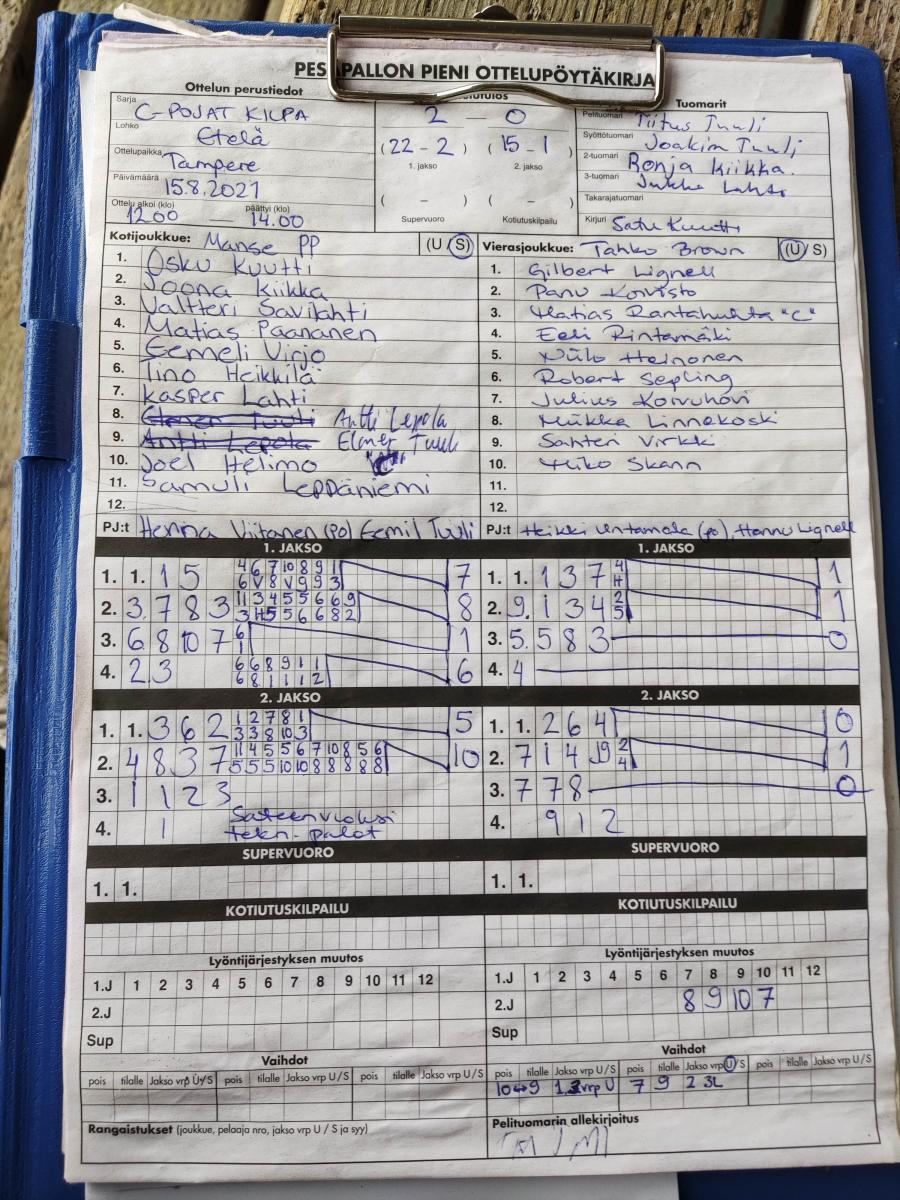 PESÄPALLON PIENI OTTELUPÖYTÄKIRJA
Ottelun perustiedot
Sarja C-POJAT KILPA
Lohko Etelä
Ottelupaikka Tampere
Päivämäärä 15.8.2021
Ottelu alkoi (klo) 12.00 — päättyi (klo) 14.00
2 — 0
(22 - 2) (15 - 1)
1. jakso 2. jakso
( - ) ( - )
Supervuoro Kotiutuskilpailu
Tuomarit
Pelituomari Tiitus Tuuli
Syöttötuomari Joakim Tuuli
2-tuomari Ronja Kiikka.
3-tuomari Jukka Lahti
Takarajatuomari
Kirjuri Satu Kuutti
Kotijoukkue: Manse PP (U S)
1. Osku Kuutti
2. Joona Kiikka
3. Valtteri Savilahti
4. Matias Paananen
5. Eemeli Virjo
6. Tino Heikkilä
7. Kasper Lahti
8. Elmer Tuuli Antti Lepola
9. Antti Lepola Elmer Tuuli
10. Joel Helimo "C"
11. Samuli Leppäniemi
12.
PJ:t Henna Viitanen (po) Eemil Tuuli
Vierasjoukkue: Tahko Brown (U S)
1. Gilbert Lignell
2. Panu Koivisto
3. Matias Rantahuhta "C"
4. Eeli Rintamäki
5. Niilo Heinonen
6. Robert Sepling
7. Julius Koivuhovi
8. Miikka Linnakoski
9. Santeri Virkki
10. Miko Skann
11.
12.
PJ:t Heikki Untamala (po), Hannu Lignell
1. JAKSO
4 6 7 10 8 9 1
1. 1. 1 5 6 V 8 V 9 9 3 7
11 3 4 5 5 6 6 9
2. 3 7 8 3 3 H5 5 6 6 8 2 8
3. 6 8 10 7 6 1 1
6 6 8 9 1 1
4. 2 3 6 8 1 1 1 2 6
1. JAKSO
1. 1. 1 3 7 4 H 1
2. 9. 1 3 4 2 5 1
3. 5. 5 8 3 0
4. 4
2. JAKSO
1 2 7 8 1
1. 1. 3 6 2 3 3 8 10 3 5
11 4 5 5 6 7 10 8 5 6
2. 4 8 3 7 5 5 5 10 10 8 8 8 8 8 10
3. 1 1 2 3
4. 1 Sateen vuoksi
tekn. palot
2. JAKSO
1. 1. 2 6 4 0
2. 7 1 4 9 2 4 1
3. 7 7 8 0
4. 9 1 2
SUPERVUORO
1. 1.
SUPERVUORO
1. 1.
KOTIUTUSKILPAILU
KOTIUTUSKILPAILU
Lyöntijärjestyksen muutos
1.J 1 2 3 4 5 6 7 8 9 10 11 12
2.J
Sup
Lyöntijärjestyksen muutos
1.J 1 2 3 4 5 6 7 8 9 10 11 12
2.J 8 9 10 7
Sup
Vaihdot
pois tilalle Jakso vrp U/S pois tilalle Jakso vrp U/S pois tilalle Jakso vrp U/S
Rangaistukset (joukkue, pelaaja nro, jakso vrp U / S ja syy)
Vaihdot
pois tilalle Jakso vrp U/S pois tilalle Jakso vrp U/S pois tilalle Jakso vrp U/S
10↔9 1.3 vrp U 7 9 2 3L
Pelituomarin allekirjoitus